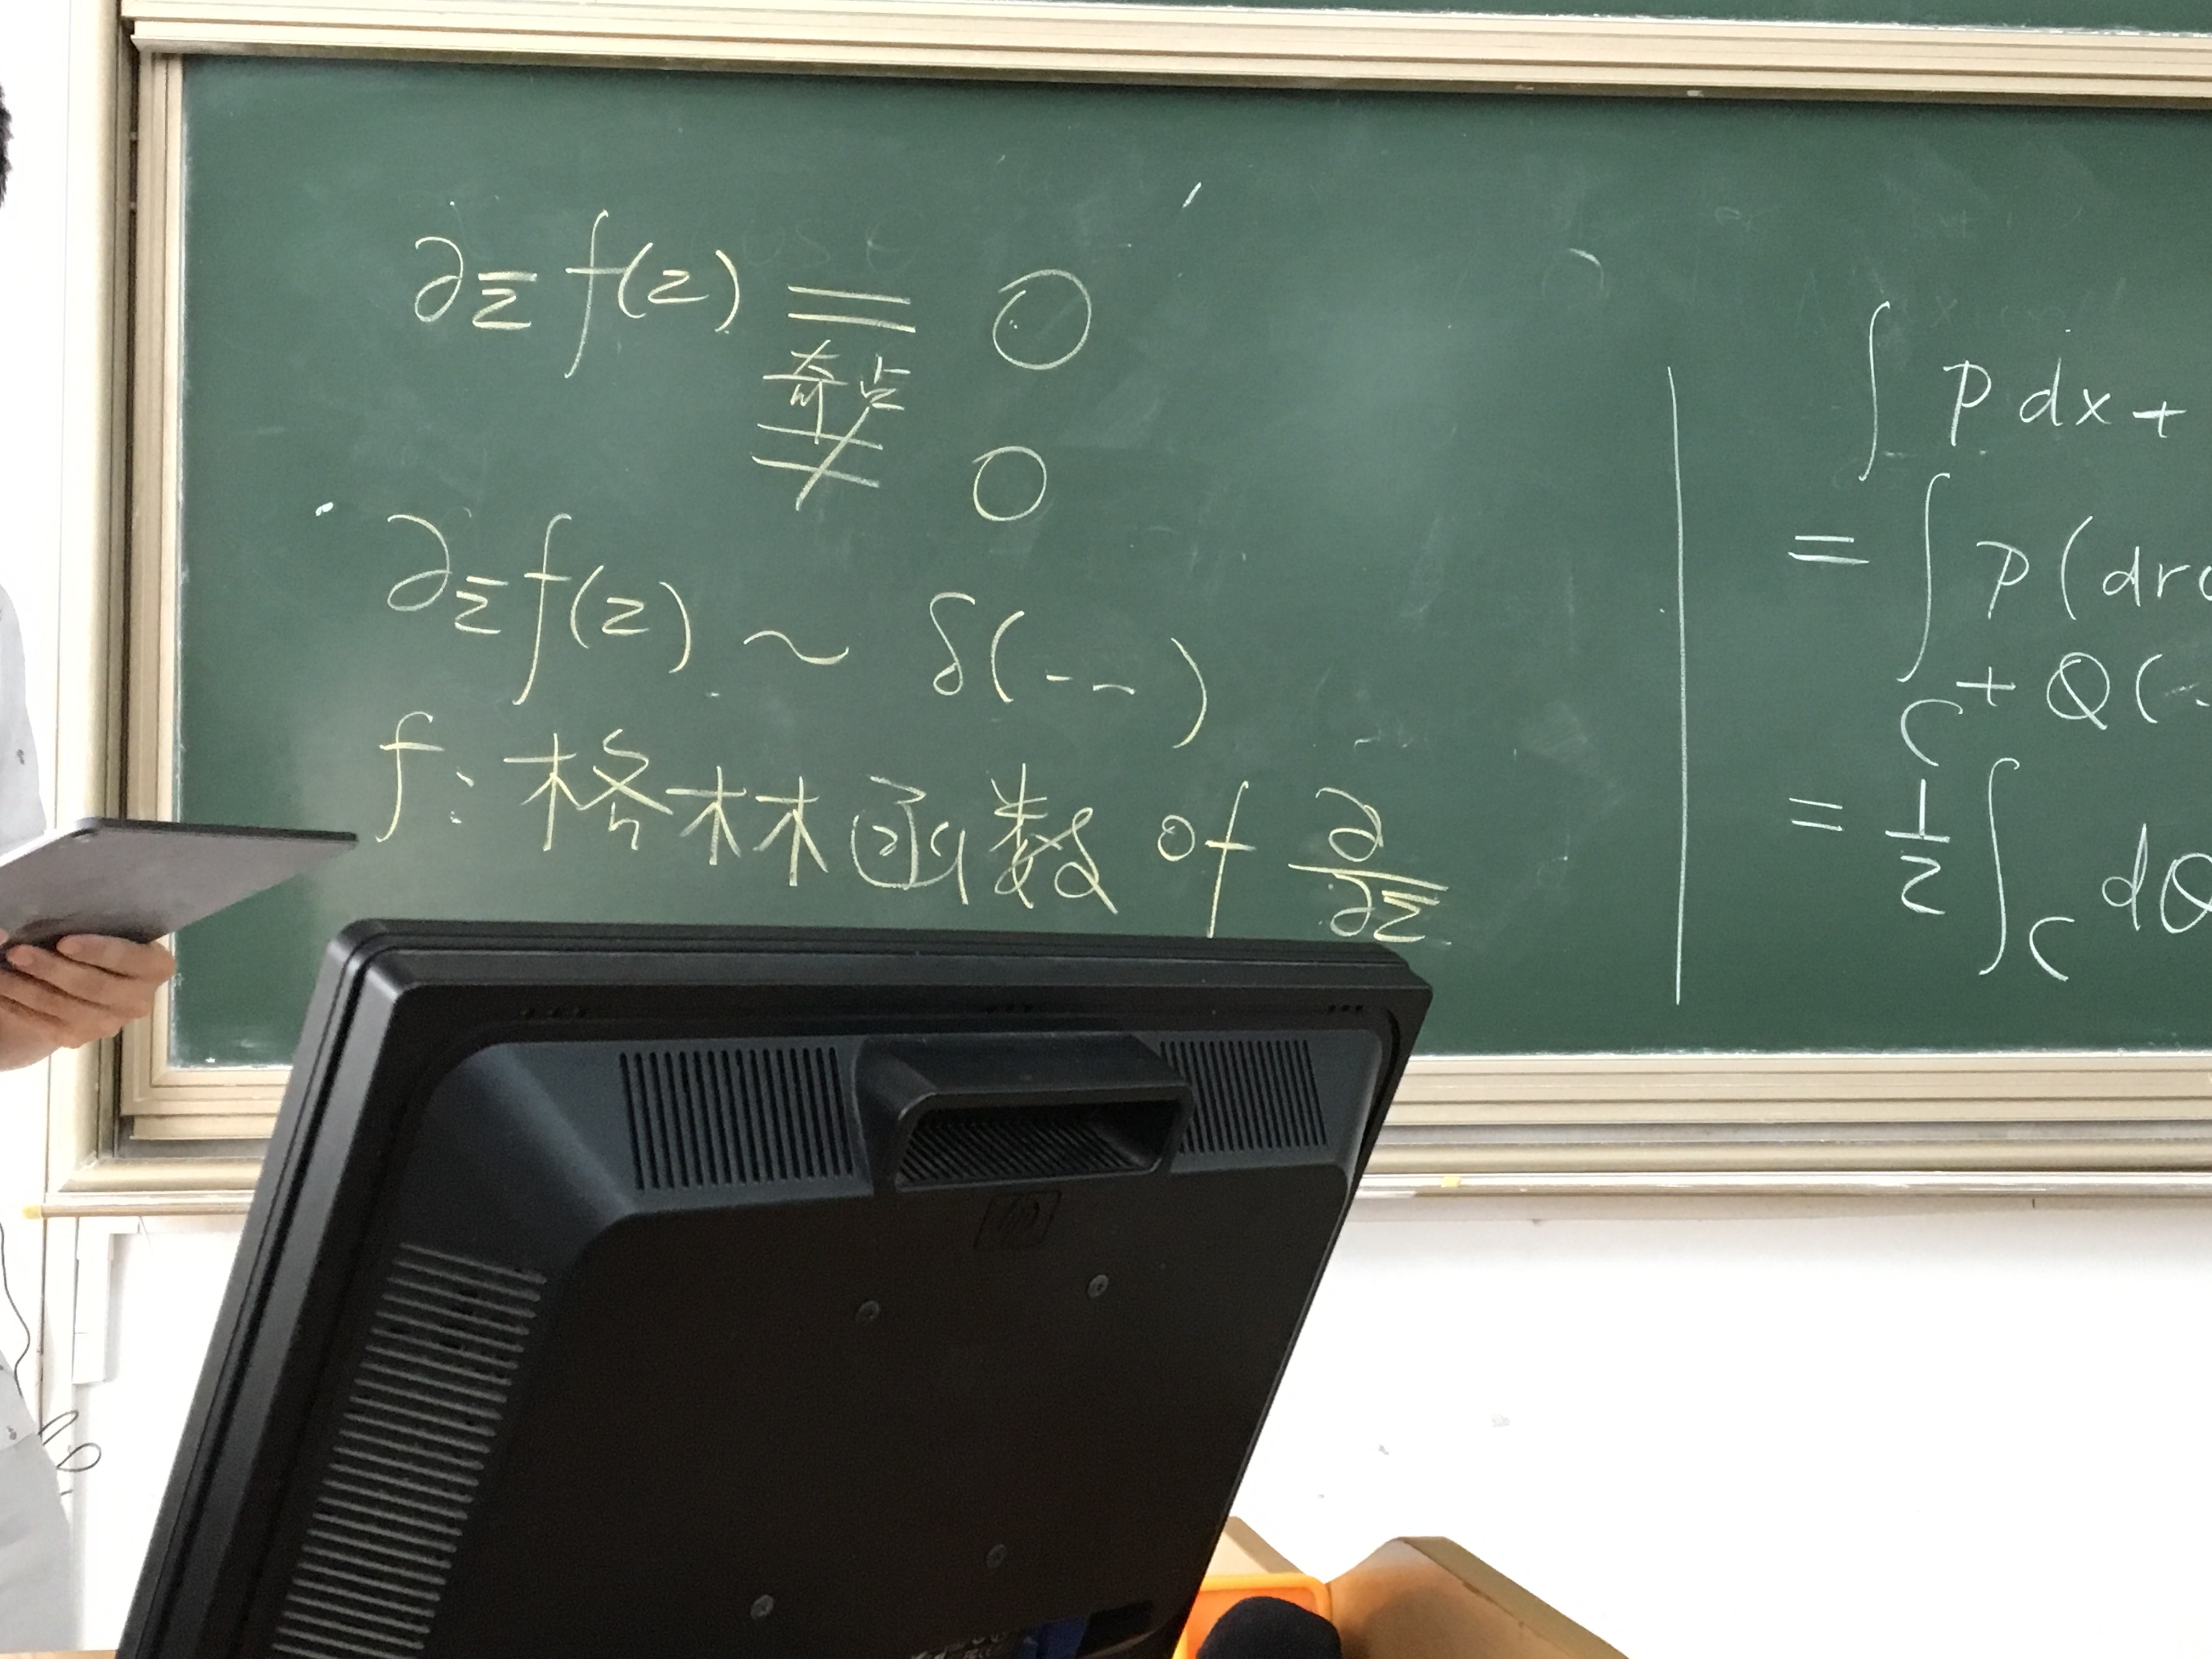 ∂_z̄ f(z) = 0
奇点
≠ 0
∂_z̄ f(z) ~ δ(---)
f: 格林函数 of ∂/∂z̄
∫ P dx +
= ∫_C P(dr
+ Q(
= 1/2 ∫_C dQ
hp